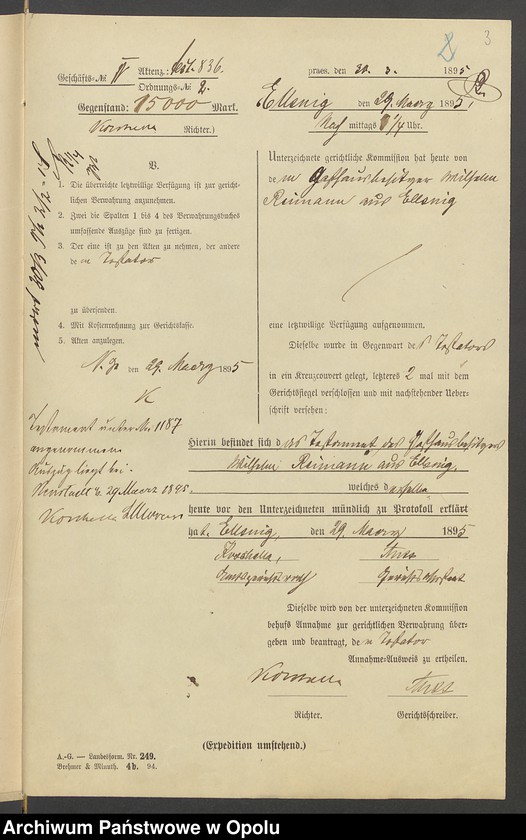 3
Geschäfts-№ IV Aktenz.: 836.
Ordnungs-№ 2.
Gegenstand: 15000 Mark.
Richter.)
praes. den 30. 3. 1895
Ellsnig den 29. Maerz 1895.
Nach mittags Uhr.
V.
1. Die überreichte letztwillige Verfügung ist zur gericht-
lichen Verwahrung anzunehmen.
2. Zwei die Spalten 1 bis 4 des Verwahrungsbuches
umfassende Auszüge sind zu fertigen.
3. Der eine ist zu den Akten zu nehmen, der andere
de m Testator
zu übersenden.
4. Mit Kostenrechnung zur Gerichtskasse.
5. Akten anzulegen.
den 29. Maerz 1895
Testament unter Nr. 1187
angenommen
Auszug liegt bei.
Neustadt 29 Maerz 1895.
Unterzeichnete gerichtliche Kommission hat heute von
de m Gasthausbesitzer Wilhelm
Reimann aus Ellsnig
eine letztwillige Verfügung aufgenommen.
Dieselbe wurde in Gegenwart des Testators
in ein Kreuzcouvert gelegt, letzteres 2 mal mit dem
Gerichtssiegel verschlossen und mit nachstehender Ueber-
schrift versehen:
Hierin befindet sich das Testament des Gasthausbesitzer
Wilhelm Reimann aus Ellsnig,
welches derselbe
heute vor den Unterzeichneten mündlich zu Protokoll erklärt
hat. Ellsnig, den 29. Maerz 1895
Amtsgerichtsrath
Dieselbe wird von der unterzeichneten Kommission
behufs Annahme zur gerichtlichen Verwahrung über-
geben und beantragt, de m Testator
Annahme-Ausweis zu ertheilen.
Richter. Gerichtschreiber.
(Expedition umstehend.)
A.-G. — Landesform. Nr. 249.
Brehmer & Minuth. 4b. 94.
Archiwum Państwowe w Opolu